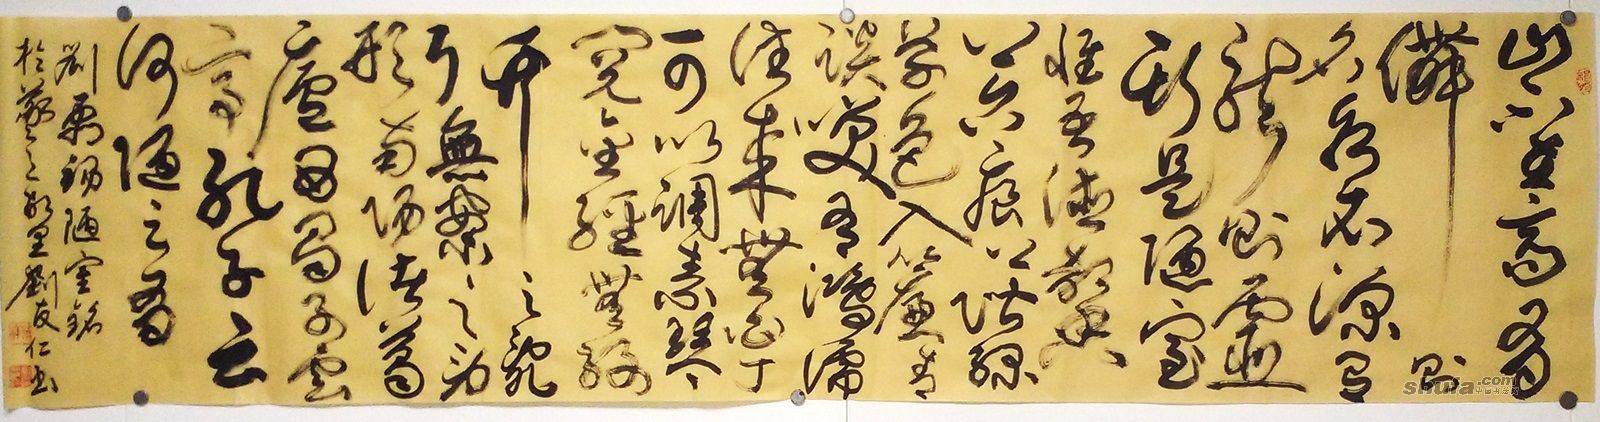 山不在高有
僊則
名水不深有
龍則靈
斯是陋室
惟吾德馨
苔痕上階綠
草色入簾青
談笑有鴻儒
往來無白丁
可以調素琴
閱金經無絲
竹之亂
耳無案之勞
形南陽諸葛
廬西蜀子雲
亭孔子云
何陋之有
劉禹錫陋室銘
於 劉友仁書
shufa.com